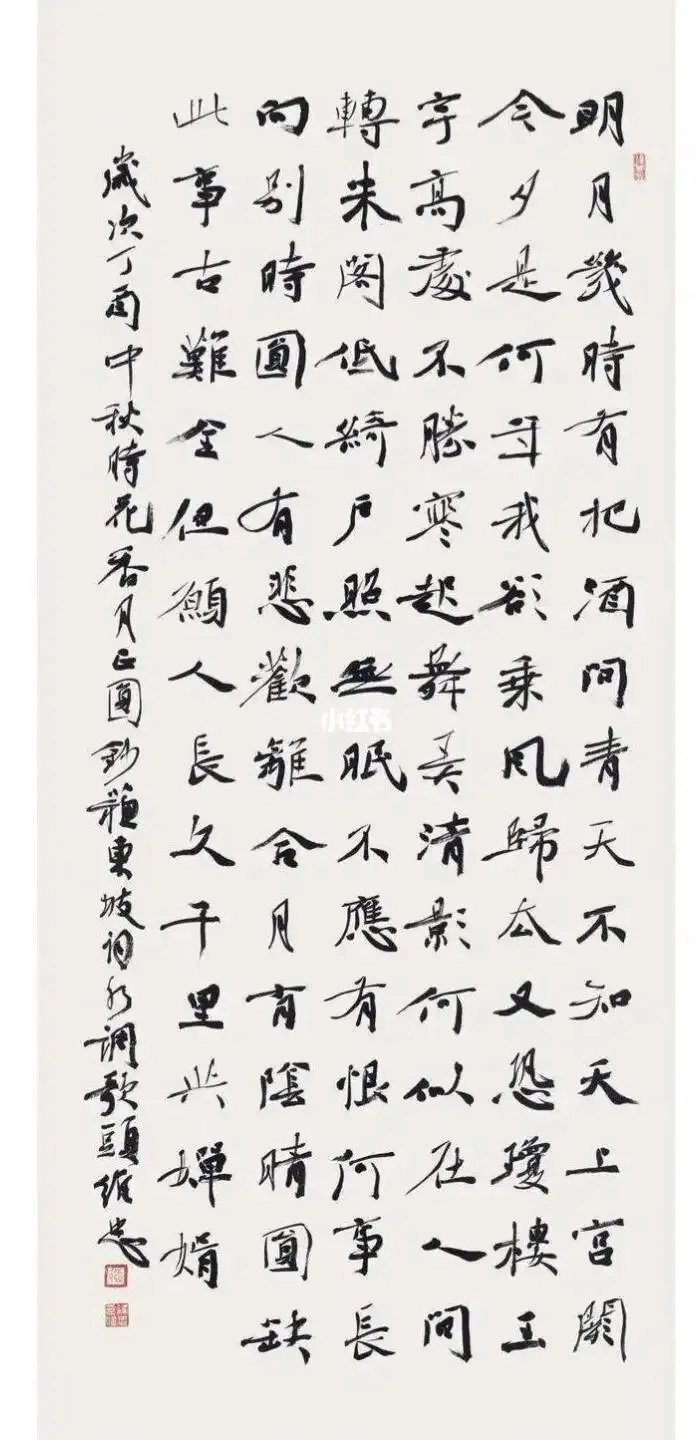 明月幾時有把酒問青天不知天上宮闕
今夕是何年我欲乘風歸去又恐瓊樓玉
宇高處不勝寒起舞弄清影何似在人間
轉朱閣低綺戶照無眠不應有恨何事長
向別時圓人有悲歡離合月有陰晴圓缺
此事古難全但願人長久千里共嬋娟
歲次丁酉中秋時花香月正圓鈔蘇東坡詞水調歌頭維忠
小红书